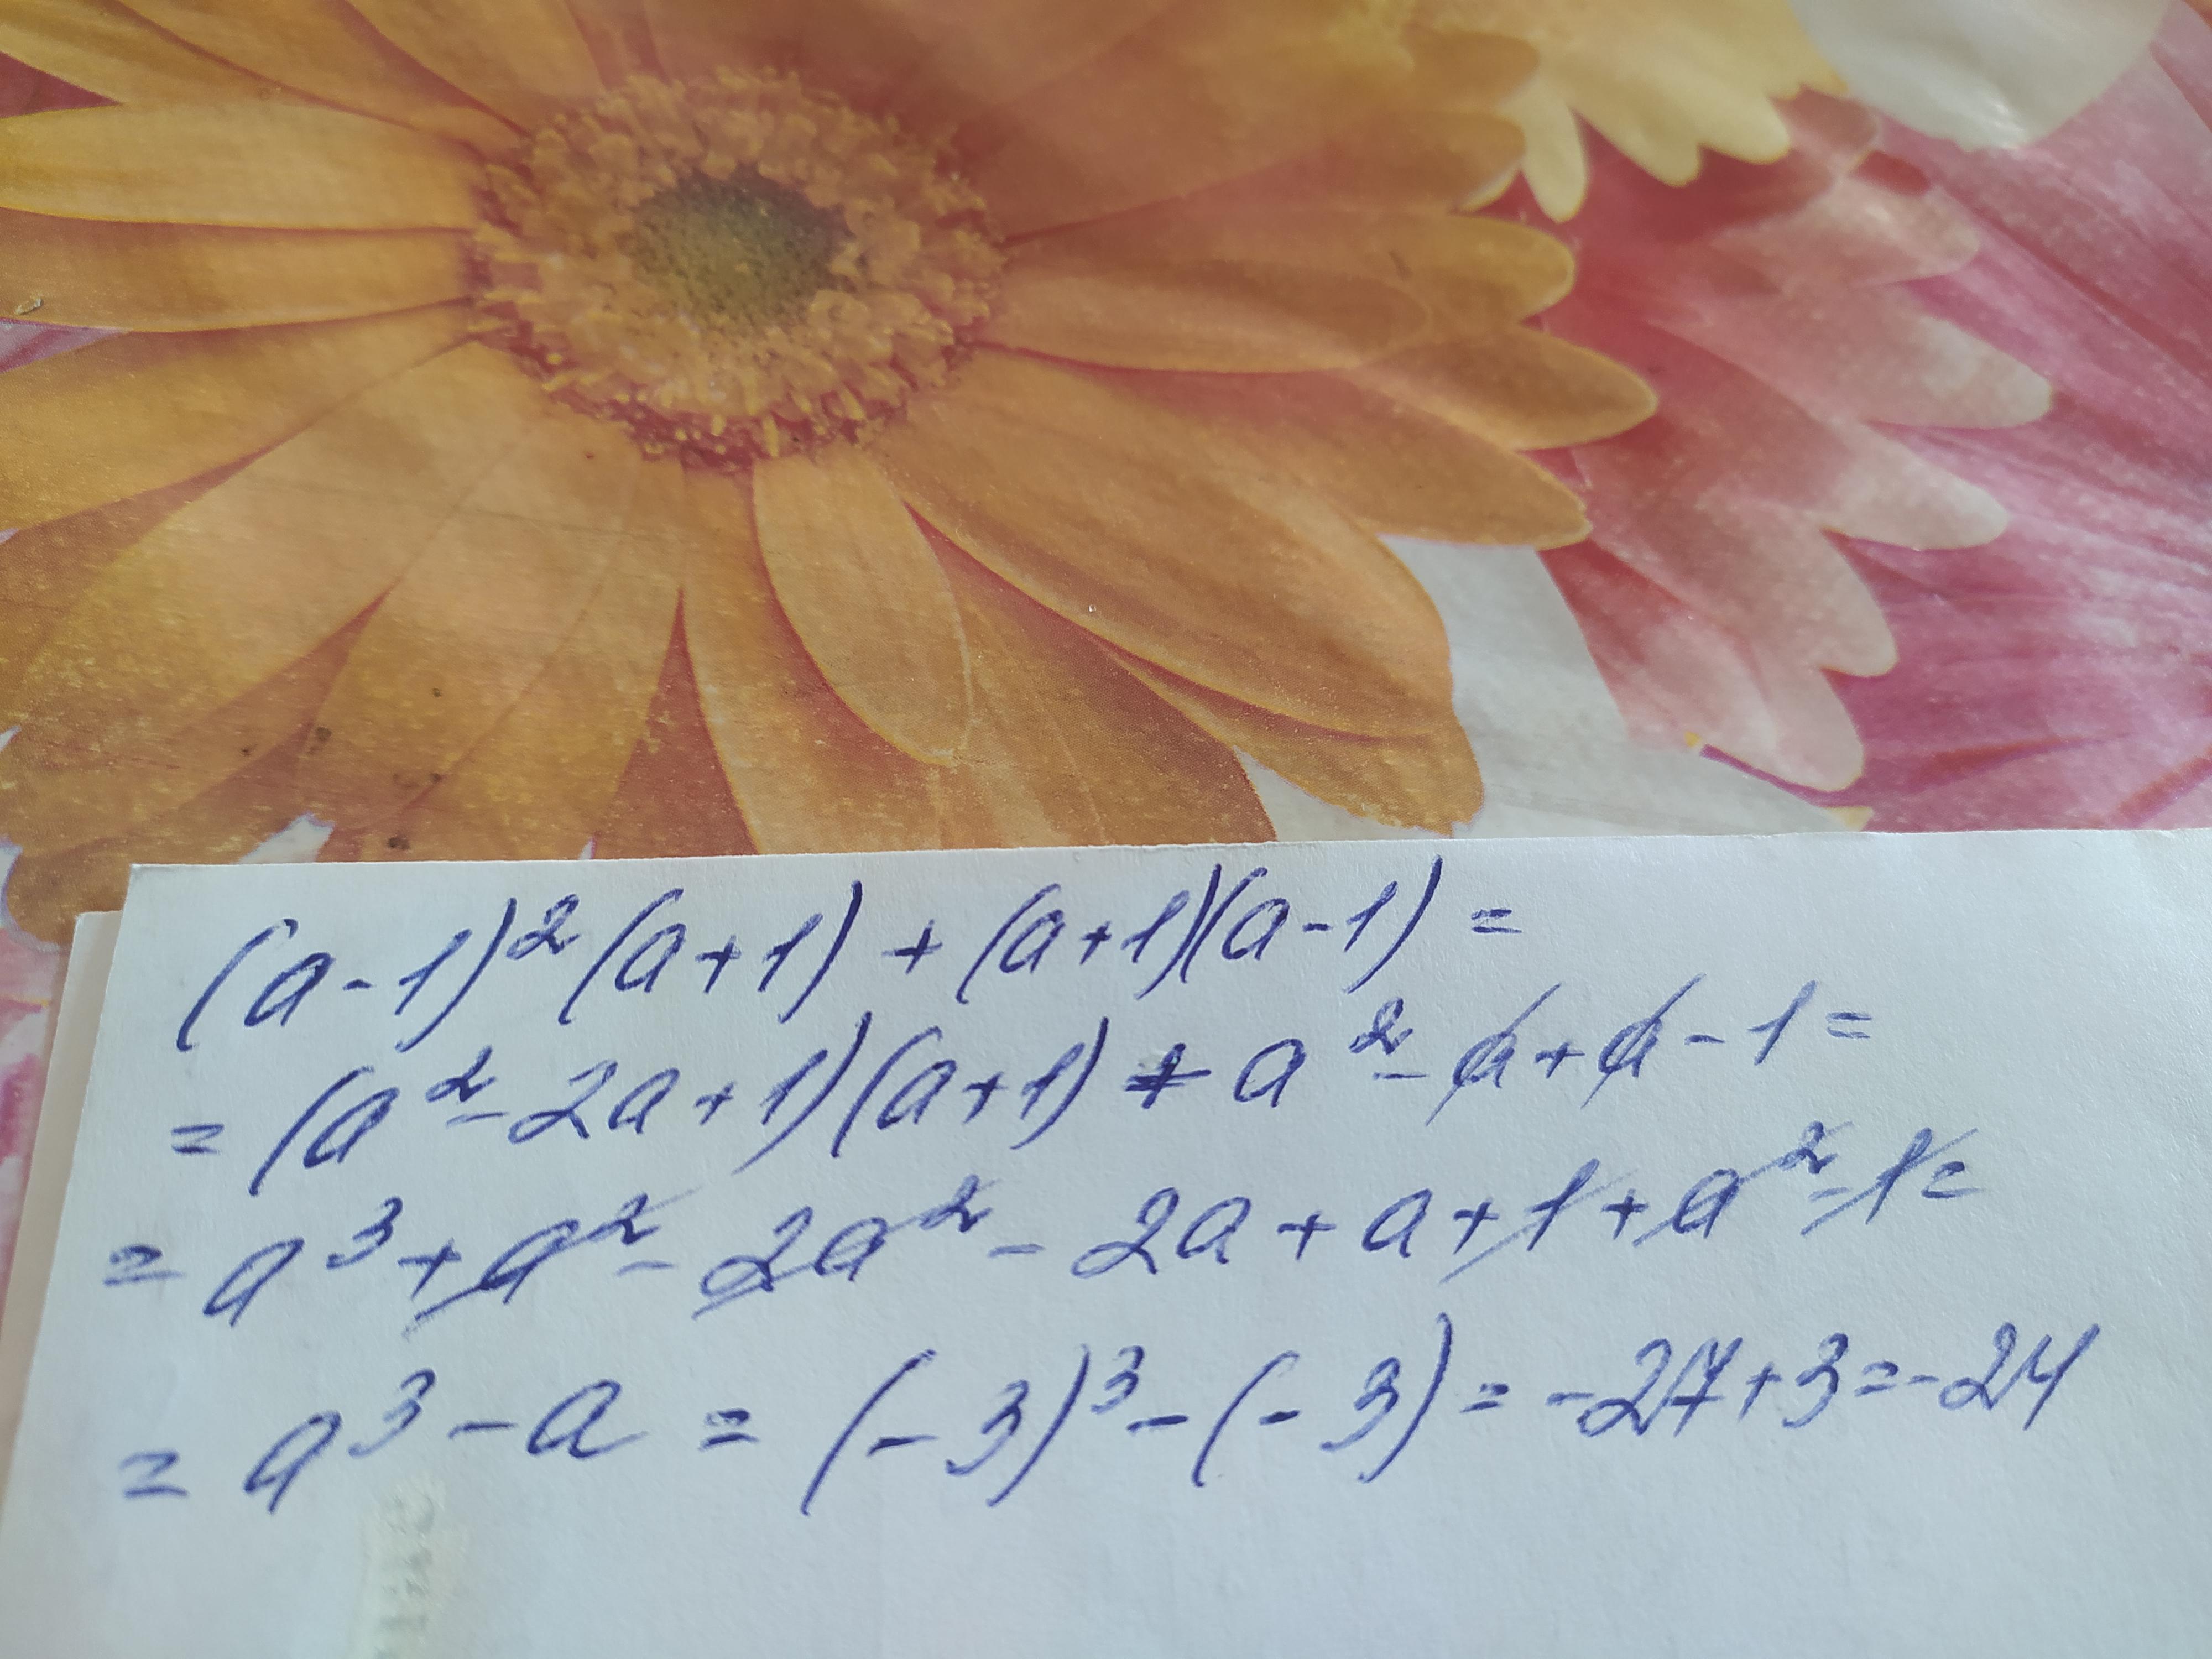 (a-1)²(a+1)+(a+1)(a-1)=
=(a²-2a+1)(a+1)+a²-a+a-1=
=a³+a²-2a²-2a+a+1+a²-1=
=a³-a=(-3)³-(-3)=-27+3=-24